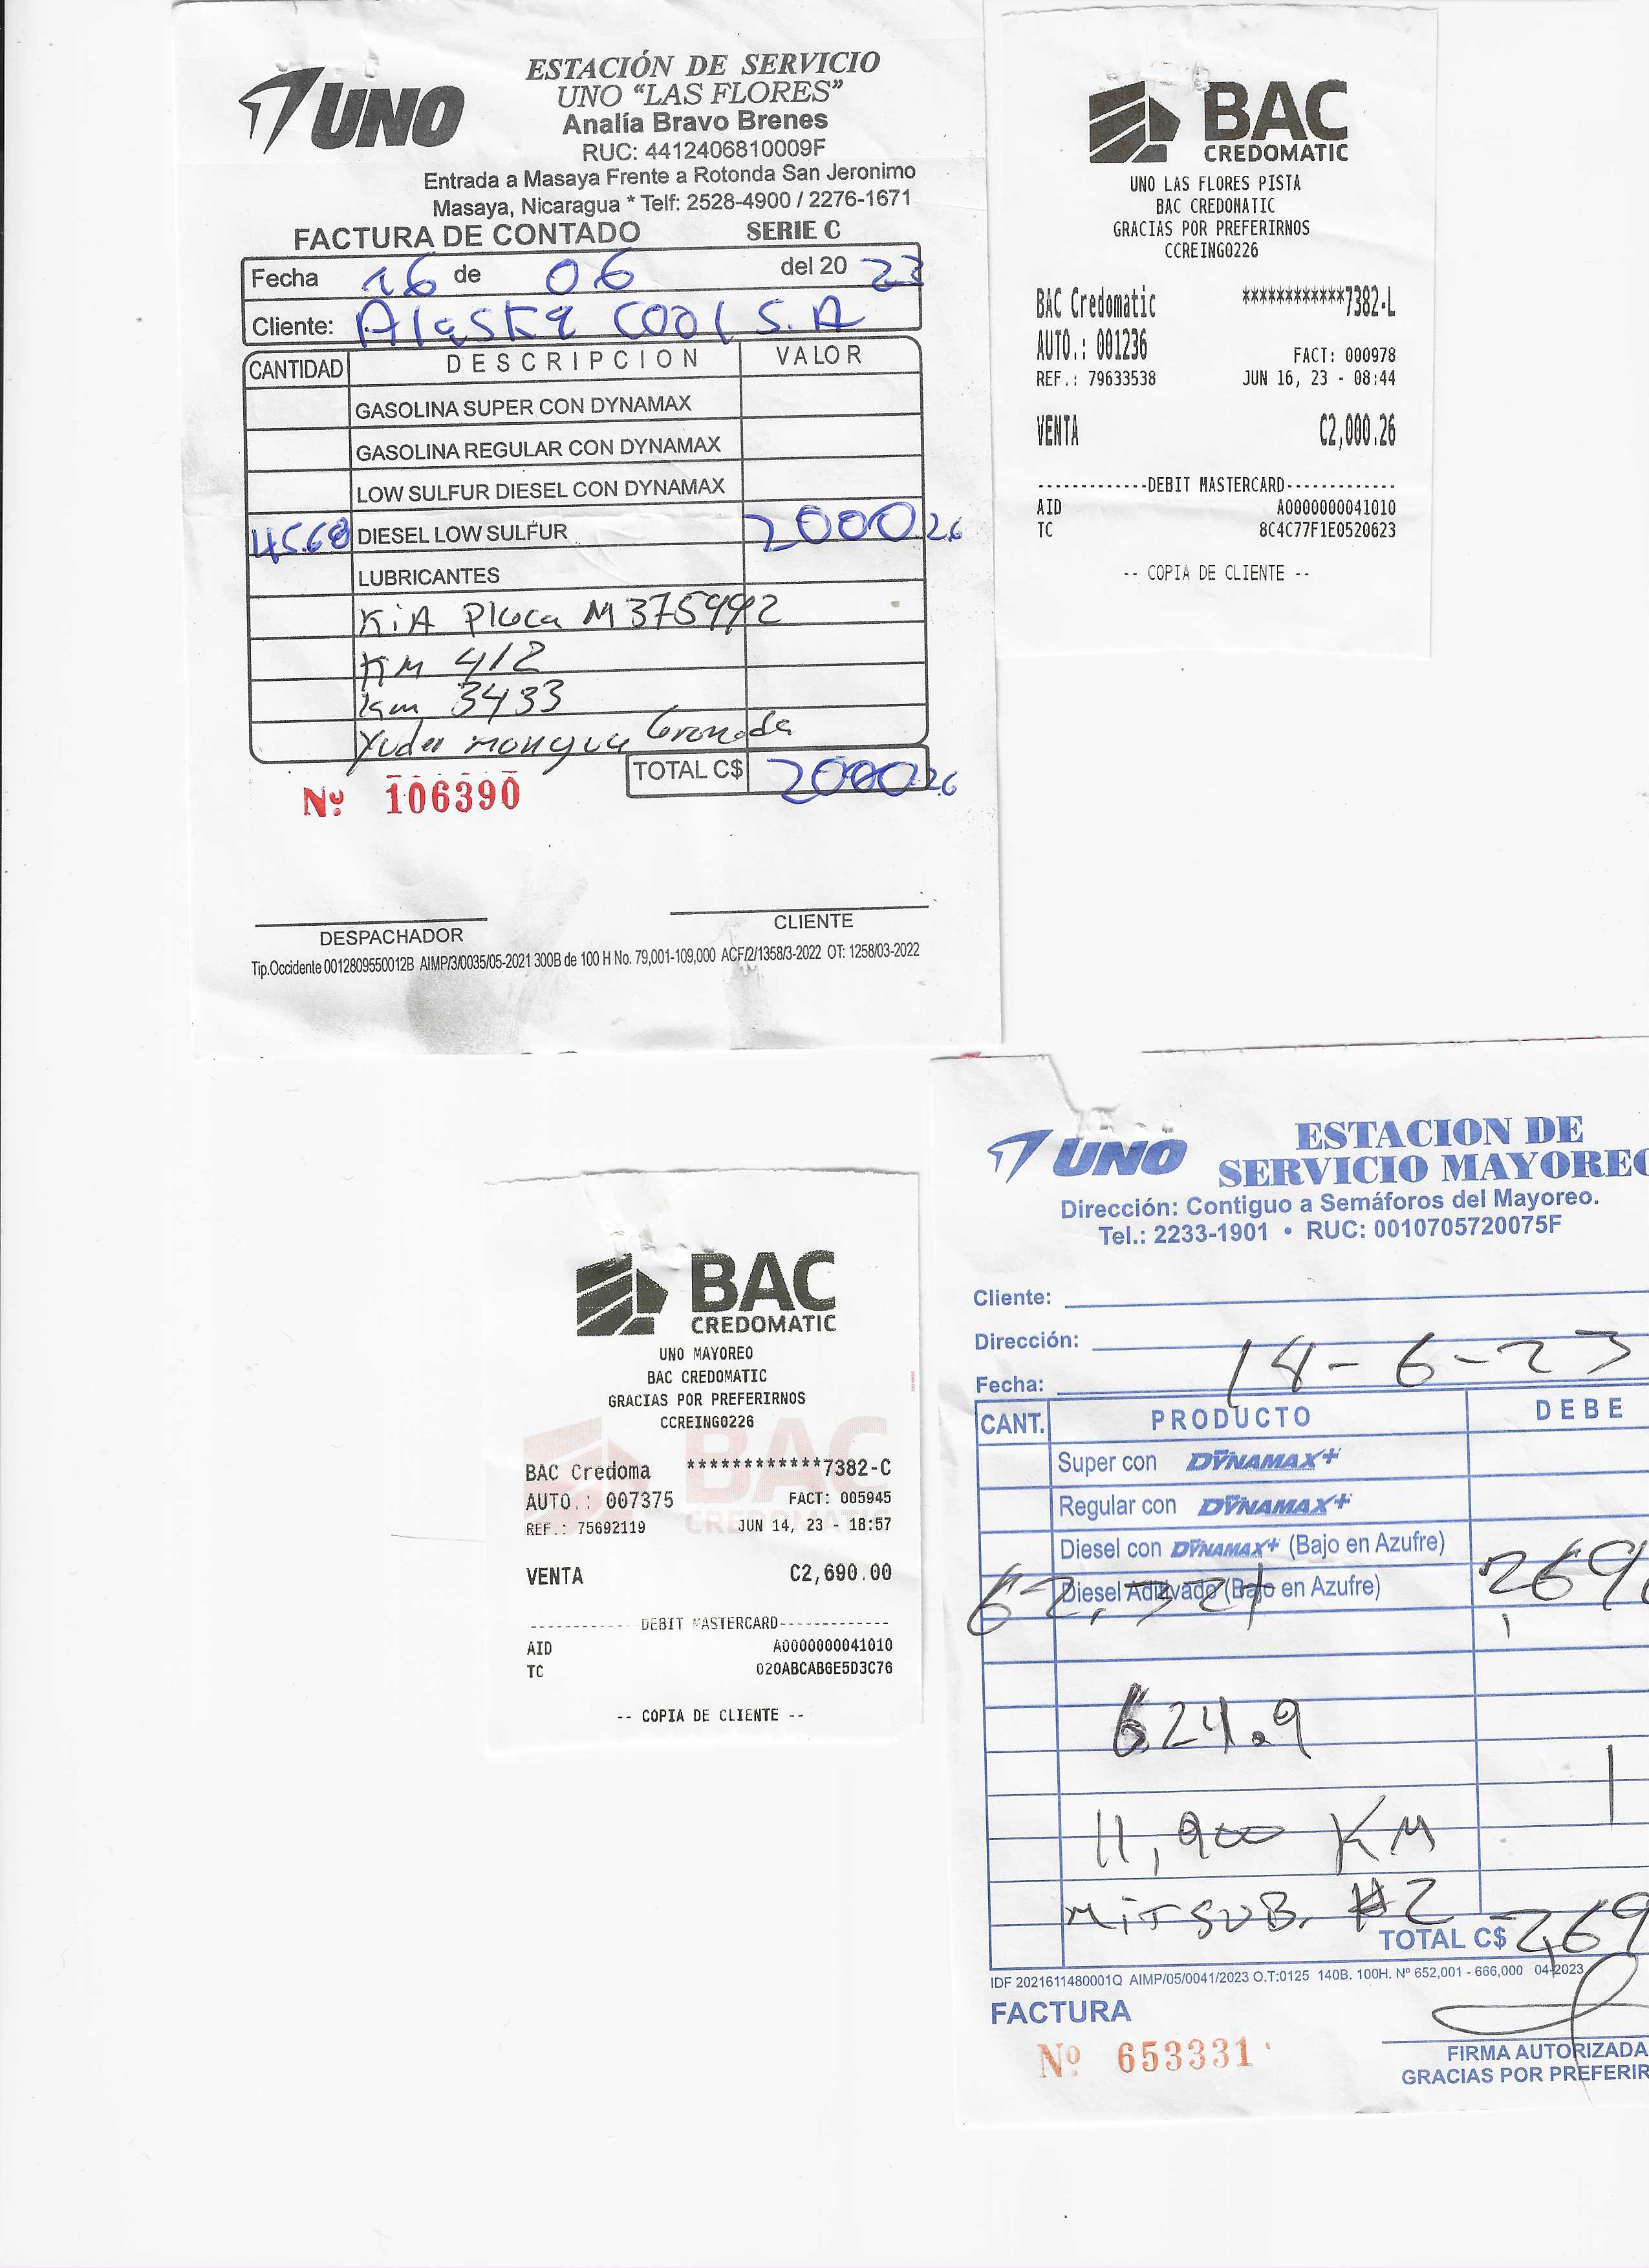 UNO
ESTACIÓN DE SERVICIO
UNO "LAS FLORES"
Analía Bravo Brenes
RUC: 4412406810009F
Entrada a Masaya Frente a Rotonda San Jeronimo
Masaya, Nicaragua * Telf: 2528-4900 / 2276-1671
FACTURA DE CONTADO SERIE C
Fecha 16 de 06 del 20 23
Cliente: Alaska Cool S.A
CANTIDAD DESCRIPCION VALOR
GASOLINA SUPER CON DYNAMAX
GASOLINA REGULAR CON DYNAMAX
LOW SULFUR DIESEL CON DYNAMAX
45.68 DIESEL LOW SULFUR 2000.26
LUBRICANTES
KiA Placa M 375992
KM 412
km 3433
Granada
TOTAL C$ 2000.26
Nº 106390
DESPACHADOR CLIENTE
Tip.Occidente 0012809550012B AIMP/3/0035/05-2021 300B de 100 H No. 79,001-109,000 ACF/2/1358/3-2022 OT: 1258/03-2022
BAC
CREDOMATIC
UNO LAS FLORES PISTA
BAC CREDOMATIC
GRACIAS POR PREFERIRNOS
CCREING0226
BAC Credomatic ************7382-L
AUTO.: 001236 FACT: 000978
REF.: 79633538 JUN 16, 23 - 08:44
VENTA C2,000.26
------------DEBIT MASTERCARD------------
AID A0000000041010
TC 8C4C77F1E0520623
-- COPIA DE CLIENTE --
BAC
CREDOMATIC
UNO MAYOREO
BAC CREDOMATIC
GRACIAS POR PREFERIRNOS
CCREING0226
BAC Credoma ************7382-C
AUTO.: 007375 FACT: 005945
REF.: 75692119 JUN 14, 23 - 18:57
VENTA C2,690.00
------------DEBIT MASTERCARD------------
AID A0000000041010
TC 020ABCAB6E5D3C76
-- COPIA DE CLIENTE --
UNO
ESTACION DE
SERVICIO MAYOREO
Dirección: Contiguo a Semáforos del Mayoreo.
Tel.: 2233-1901 • RUC: 0010705720075F
Cliente:
Dirección:
Fecha: 14-6-23
CANT. PRODUCTO DEBE
Super con DYNAMAX+
Regular con DYNAMAX+
Diesel con DYNAMAX+ (Bajo en Azufre)
62,321 Diesel Aditivado (Bajo en Azufre) 269
624.9
11,900 KM
MITSUB. #2
TOTAL C$ 2,69
IDF 2021611480001Q AIMP/05/0041/2023 O.T:0125 140B. 100H. Nº 652,001 - 666,000 04-2023
FACTURA
Nº 653331
FIRMA AUTORIZADA
GRACIAS POR PREFERIR